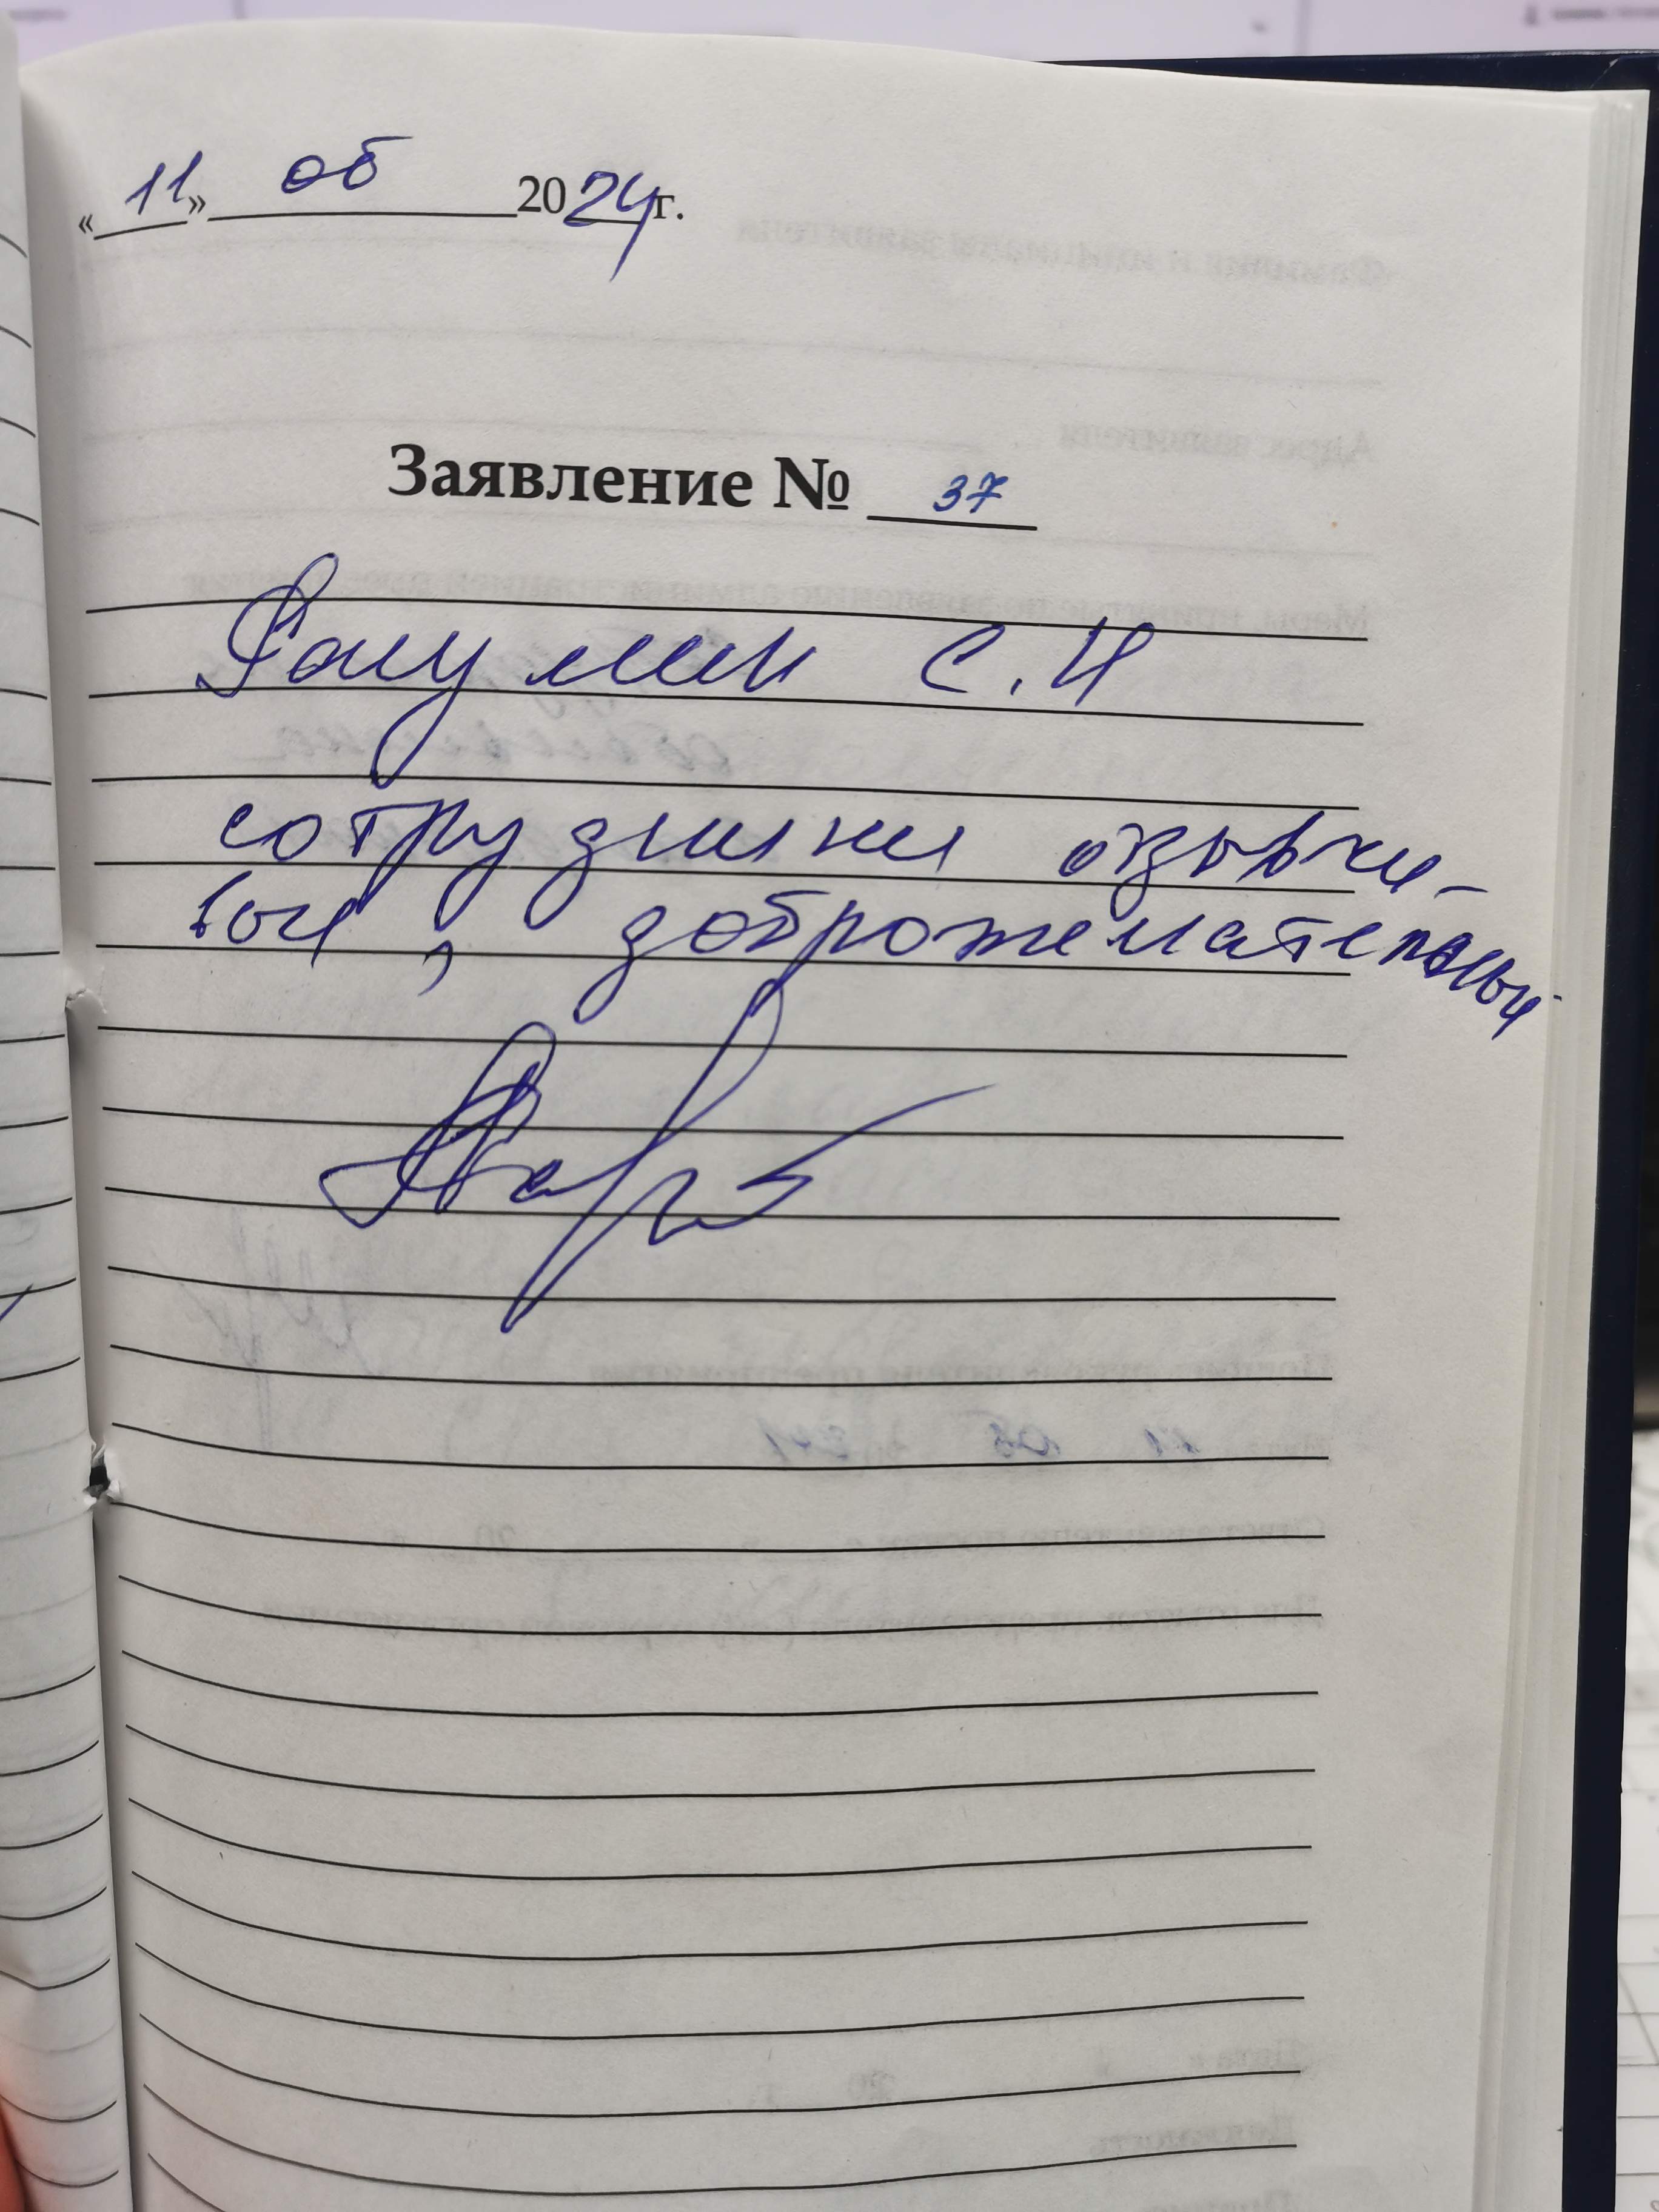 «11» 06 2024 г.
Заявление № 37
С.И
сотрудники отзывчи-
вые, доброжелательный